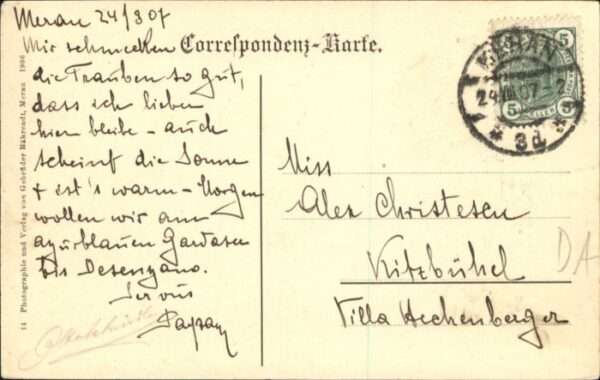 Meran 24/8 07
Correspondenz-Karte.
Mir schmecken
die Trauben so gut,
dass ich lieber
hier bleibe - auch
scheint die Sonne
+ ist's warm - Morgen
wollen wir am
azurblauen Gardasee
bis Desenzano.
Servus
14 Photographie und Verlag von Gebrüder Bährendt, Meran 1906
MERAN
24.VIII.07
* 3d *
5
5
5
Miss
Alex Christesen
Kitzbühel
Villa Hechenberger
DA